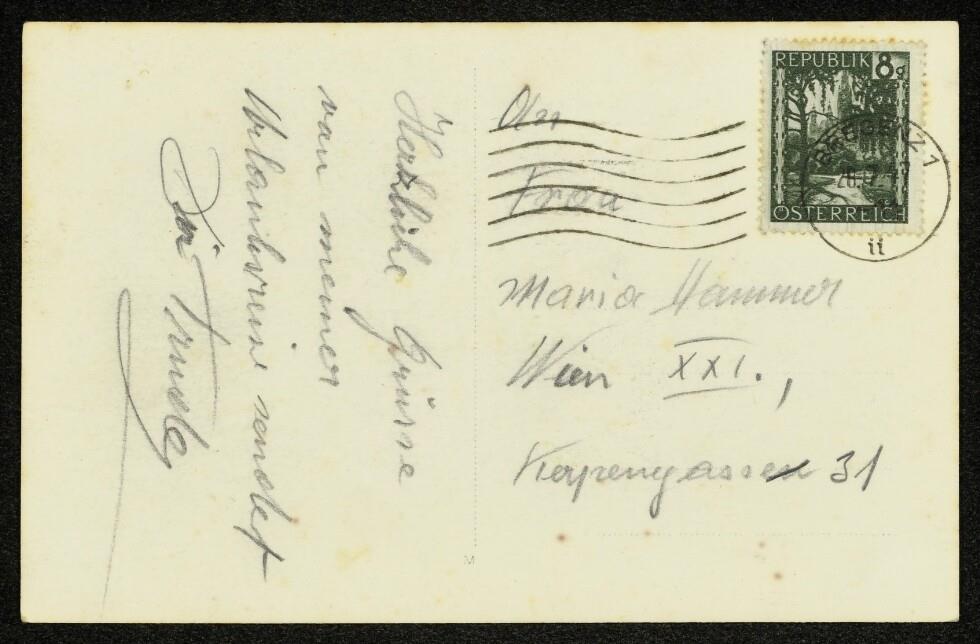 Herzliche Grüsse
von meiner
Urlaubsreise sendet
Dir Trude
An
Frau
Maria Hammer
Wien XXI.,
31
REPUBLIK 8g
ÖSTERREICH
BREGENZ 1
ii
M